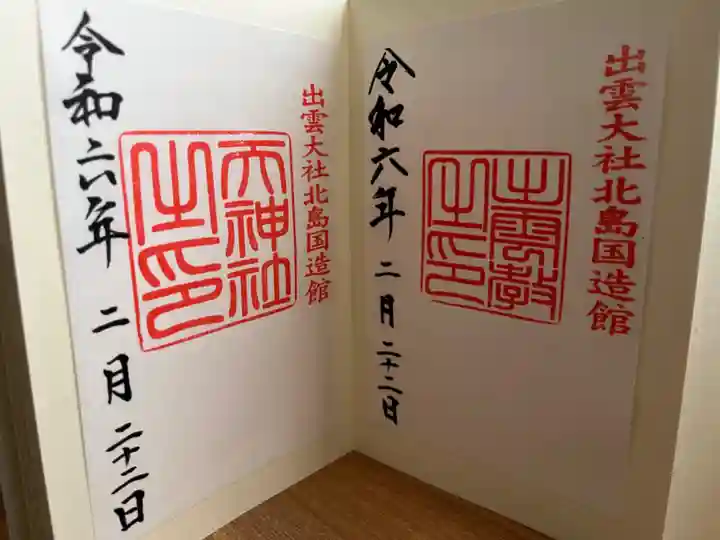 出雲大社北島国造館
出雲教
之印
令和六年 二月二十二日
出雲大社北島国造館
天神社
之印
令和六年 二月二十二日